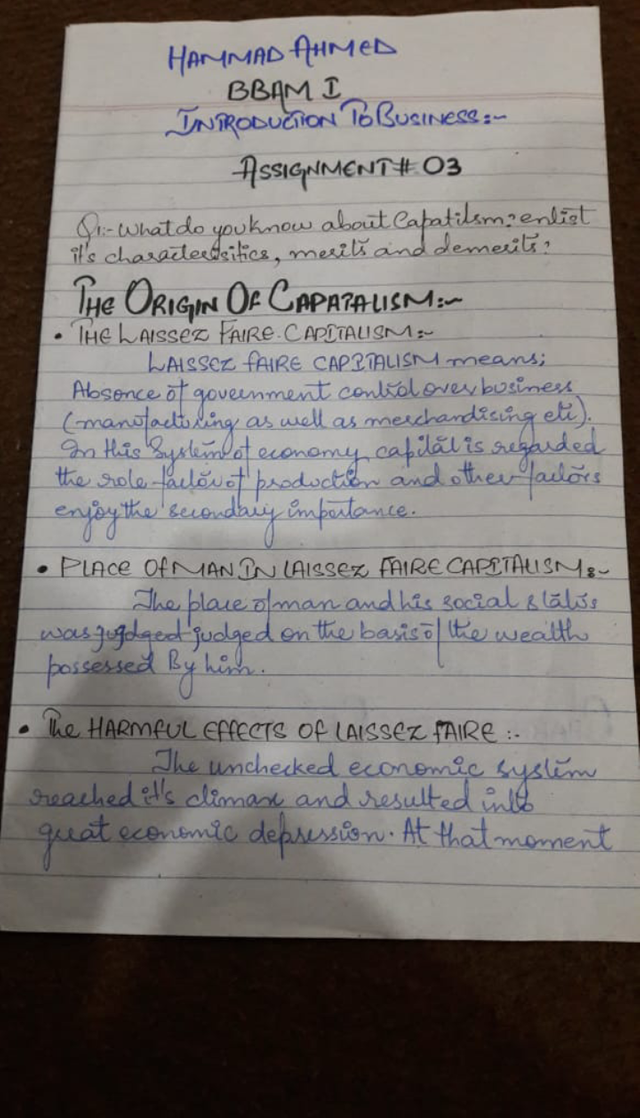 HAMMAD AHMED
BBAM I
INTRODUCTION TO BUSINESS:-
ASSIGNMENT # 03
Q1:- What do you know about Capatilsm? enlist
it's characterssitics, merits and demerits?
THE ORIGIN OF CAPATALISM:-
• THE LAISSEZ FAIRE CAPITALISM:-
LAISSEZ FAIRE CAPITALISM means;
Absence of government control over business
(manufacturing as well as merchandising etc).
In this System of economy capital is regarded
the role factor of production and other factors
enjoy the secondary importance.
• PLACE OF MAN IN LAISSEZ FAIRE CAPITALISM:-
The place of man and his social status
was judged on the basis of the wealth
possessed By him.
• The HARMFUL EFFECTS OF LAISSEZ FAIRE :-
The unchecked economic system
reached it's climax and resulted into
great economic depression. At that moment